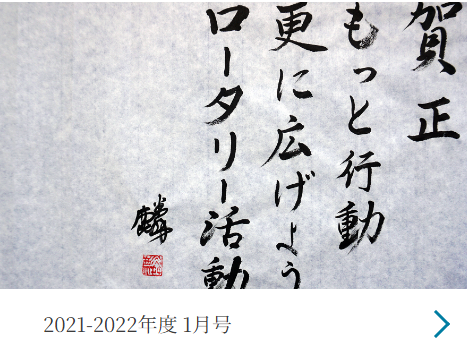 賀正
もっと行動
更に広げよう
ロータリー活動
麟
2021-2022年度 1月号